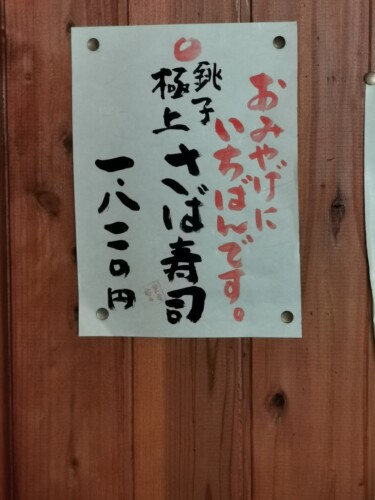 おみやげに
いちばんです。
銚子
極上さば寿司
一、八二〇円